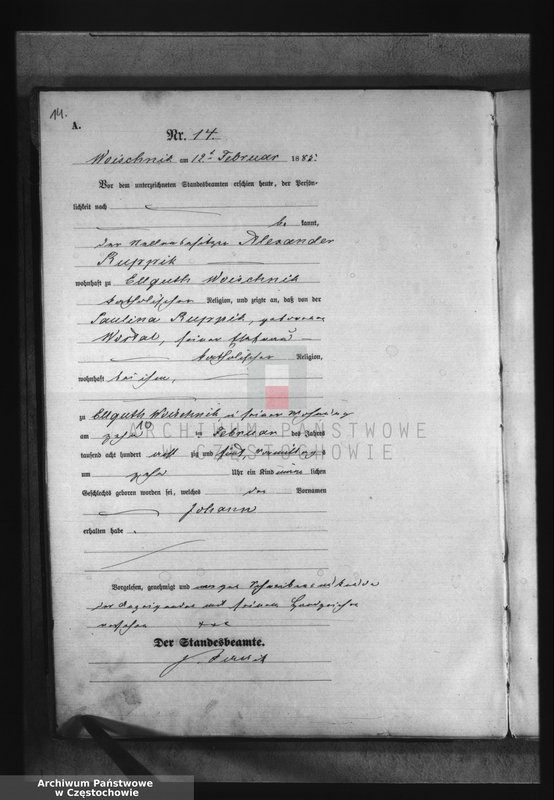 14.
A.
Nr. 14.
Woischnik am 12t Februar 1885.
Vor dem unterzeichneten Standesbeamten erschien heute, der Persön-
lichkeit nach
be kannt,
der Stellenbesitzer Alexander
Ruppik
wohnhaft zu Ellguth Woischnik
katholischer Religion, und zeigte an, daß von der
Paulina Ruppik, geborenen
seiner Ehefrau
katholischer Religion,
wohnhaft bei ihm,
zu Ellguth Woischnik in seiner Wohnung
am zehn 10 ten Februar des Jahres
tausend acht hundert acht zig und fünf, Vormittags
um zehn Uhr ein Kind männ lichen
Geschlechts geboren worden sei, welches den Vornamen
Johann
erhalten habe.
Vorgelesen, genehmigt und wegen Schreibensunkunde
des Anzeigenden mit seinem Handzeichen
versehen +++
Der Standesbeamte.
ARCHIWUM PAŃSTWOWE
W CZĘSTOCHOWIE
Archiwum Państwowe
w Częstochowie